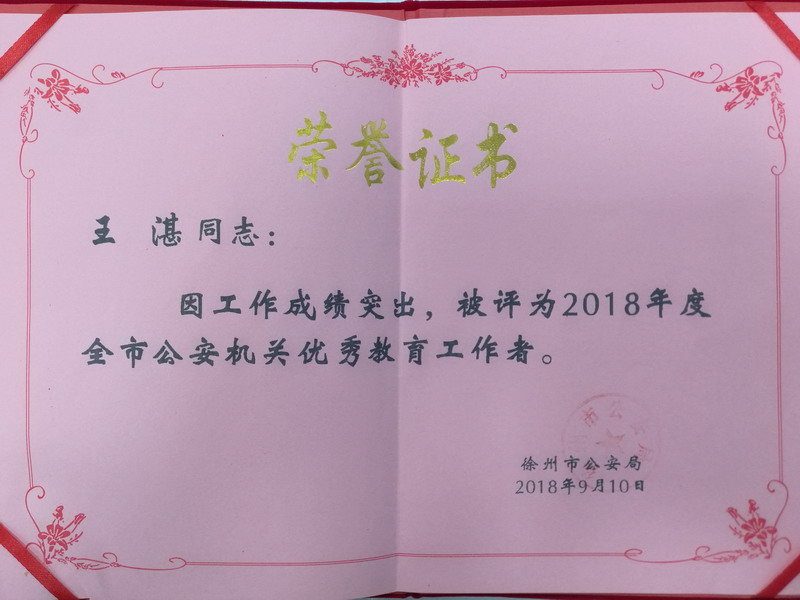 荣誉证书
王 湛同志：
因工作成绩突出，被评为2018年度
全市公安机关优秀教育工作者。
徐州市公安局
2018年9月10日